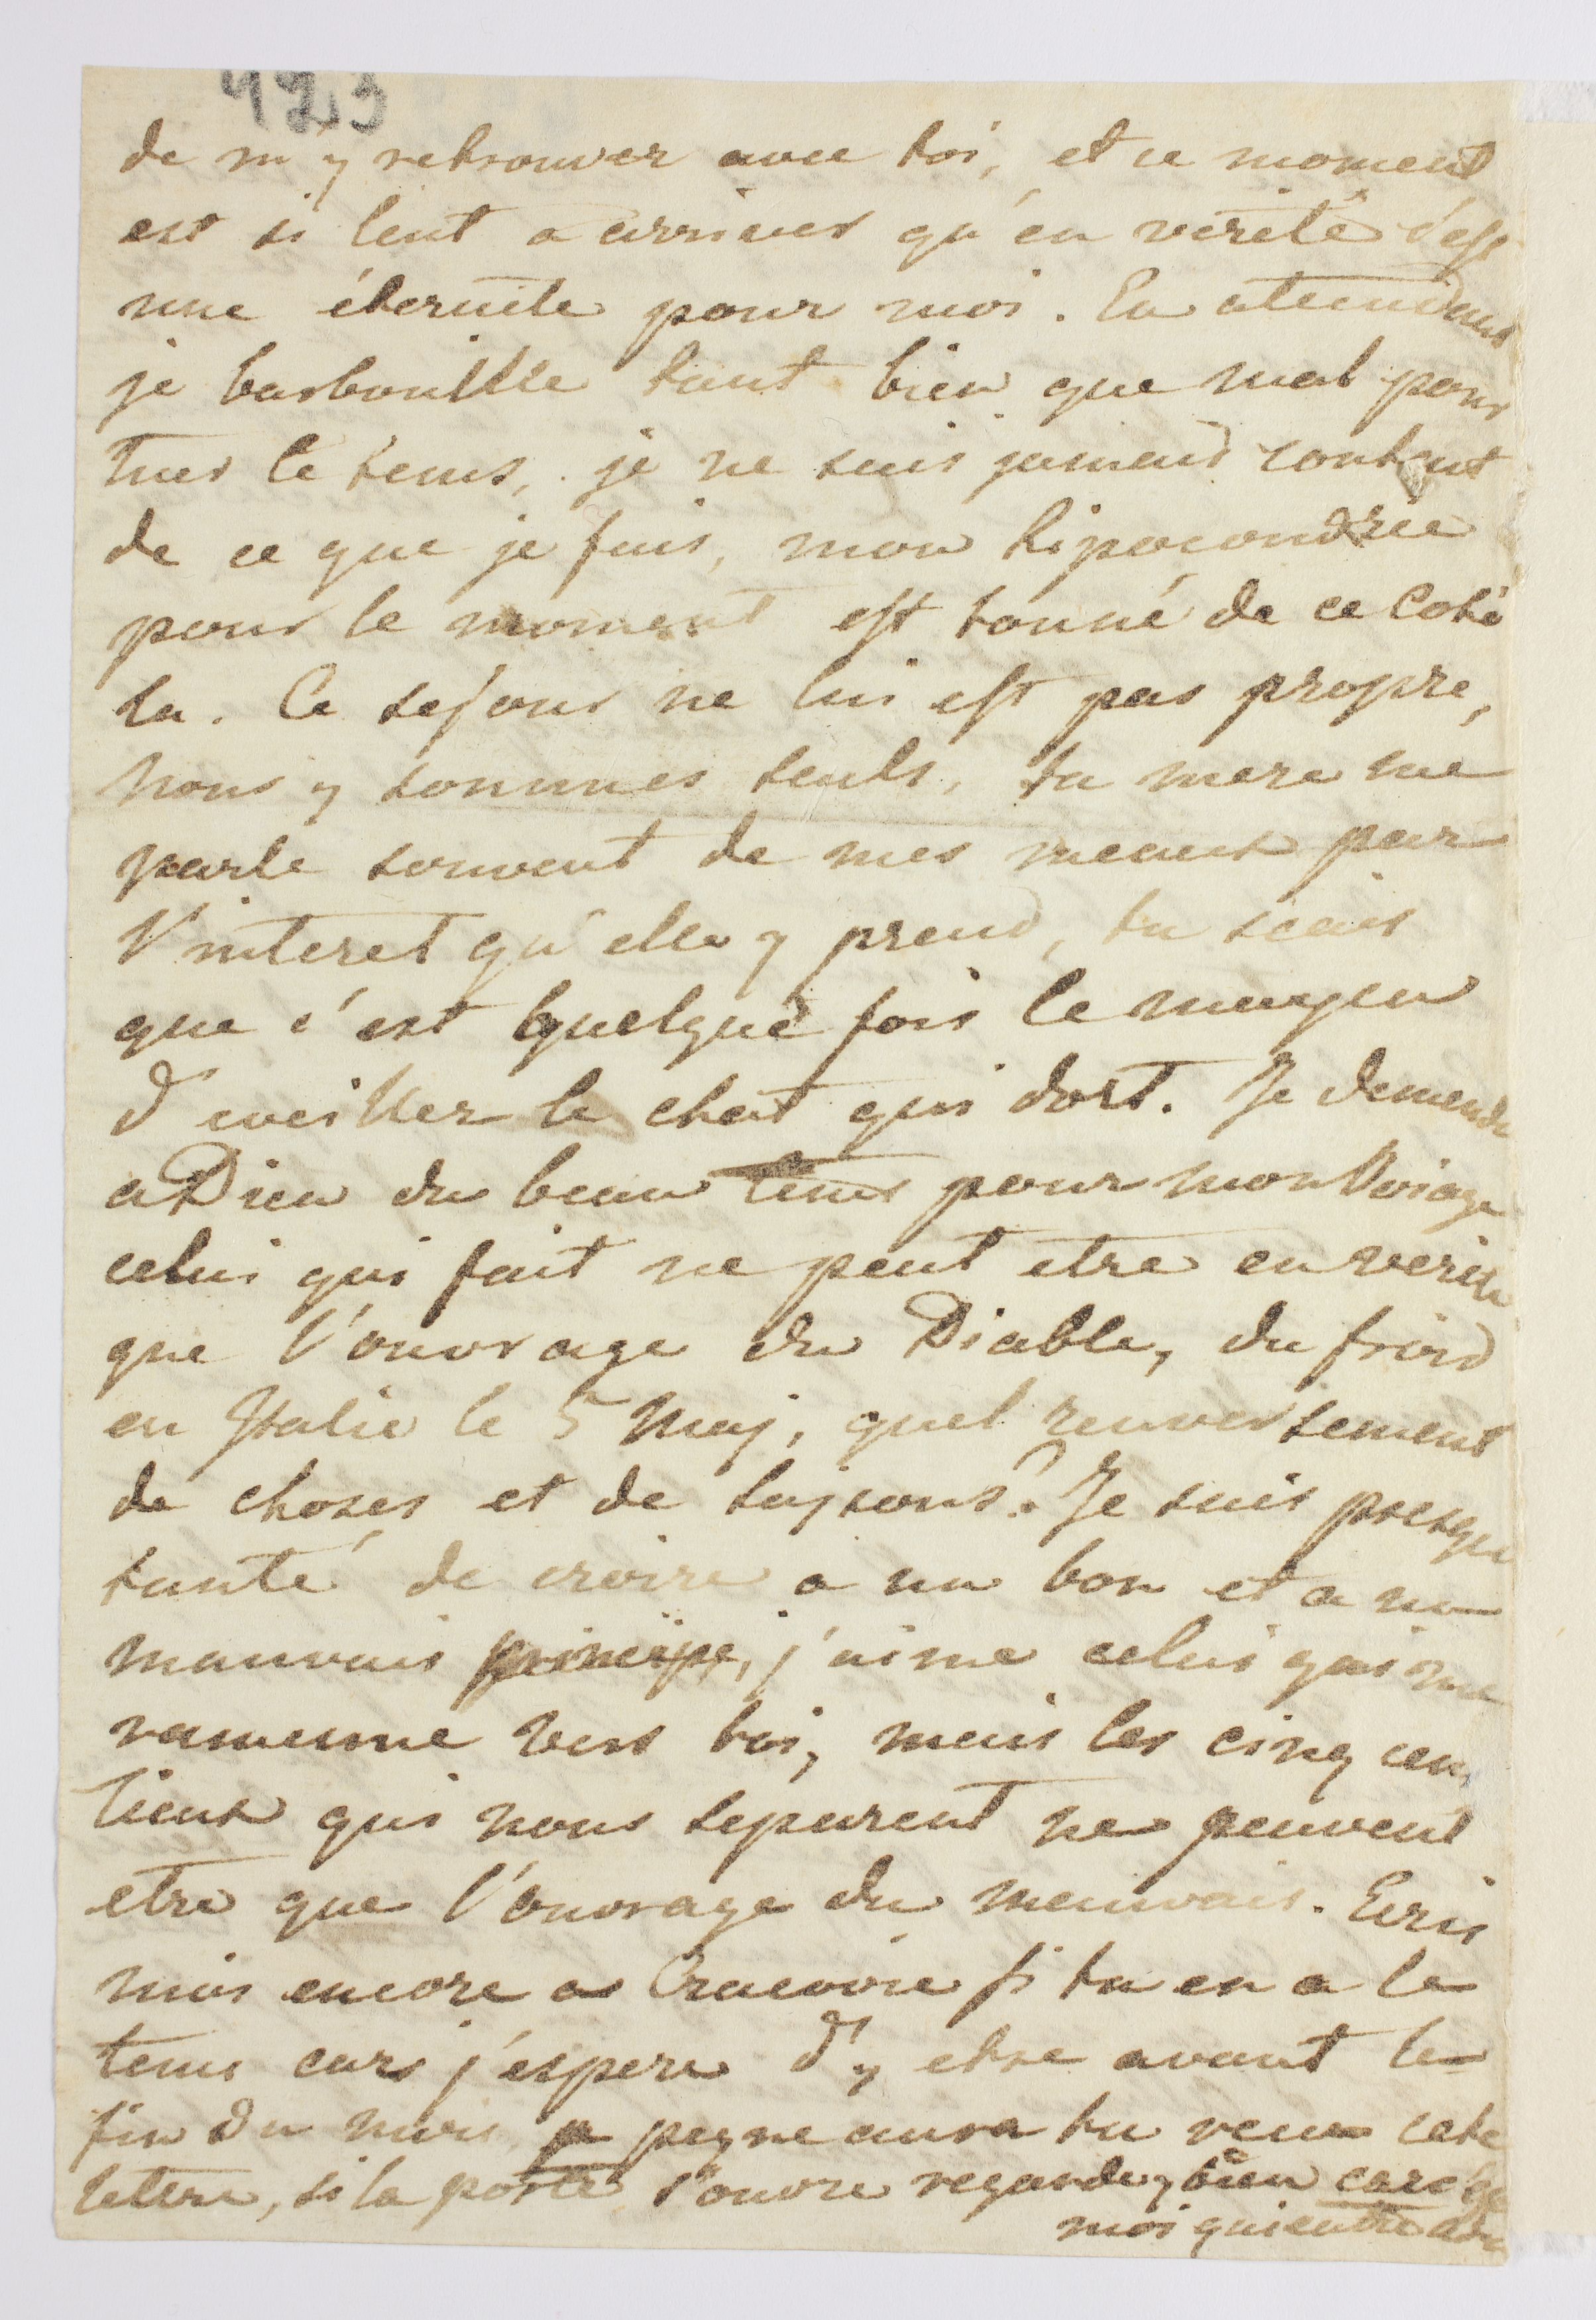 423
de m'y retrouver avec toi, et ce moment
est si lent a arriver qu'en verité c'est
une éternité pour moi. En atendant
je barbouille tant bien que mal pour
tuer le tems, je ne suis jamais content
de ce que je fais, mon hipocondrie
pour le moment est tourné de ce coté
la. Ce sejour ne lui est pas propre,
nous y sommes seuls, ta mere me
parle souvent de mes meaux par
l'interet qu'elle y prend, tu scais
que c'est quelque fois le moyen
d'eveiller le chat qui dort. Je demende
a Dieu du beau tems pour mon Voiage
celui qui fait ne peut etre en verité
que l'ouvrage du Diable, du froid
en Italie le 5 May, quel renversement
de choses et de saisons? Je suis presque
tanté de croire a un bon et a un
mauvais principe, j'aime celui qui me
ramenne vers toi, mais les cinq cent
lieux qui nous separent ne peuvent
etre que l'ouvrage du mauvais. Ecris
moi encore a Cracovie si tu en a le
tems cars j'éspere d'y etre avant la
fin du mois, a peyne aura tu recu cete
letere, si la porte s'ouvre regarde y bien car c'est
moi qui entre